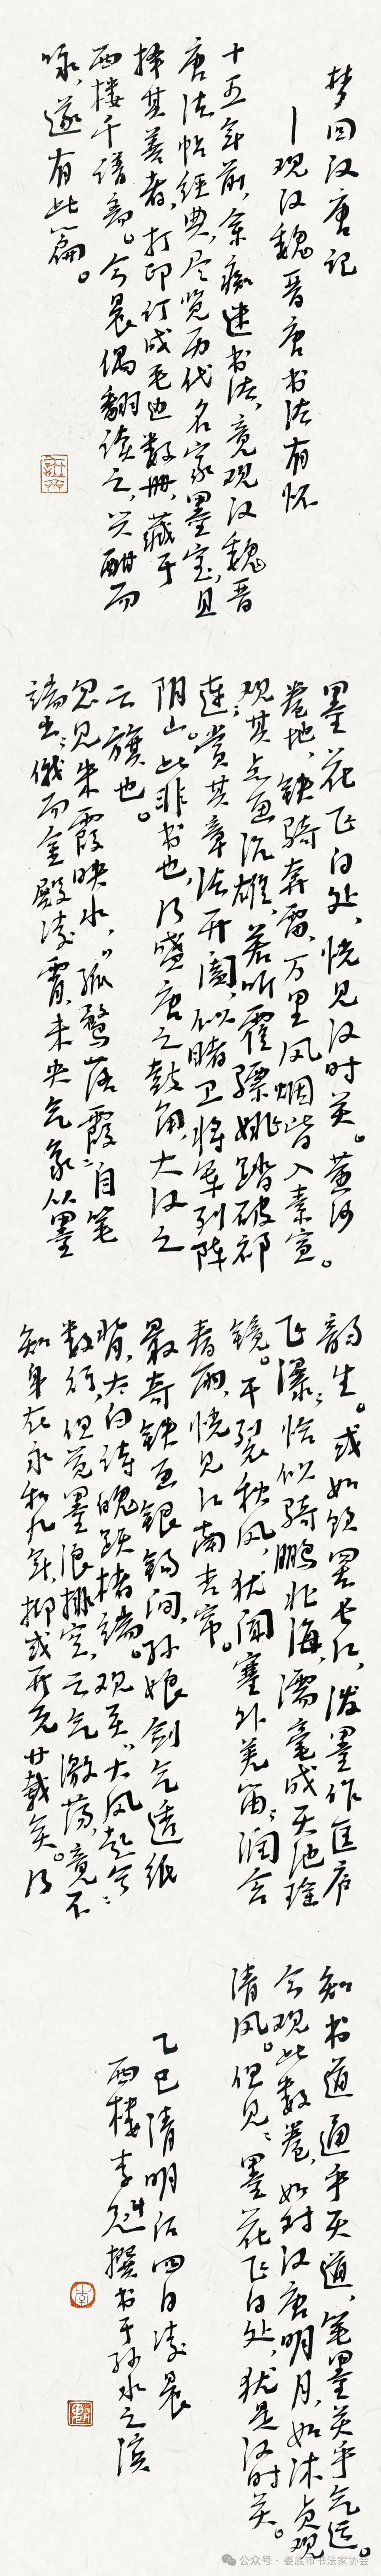 梦回汉唐记
—观汉魏晋唐书法有怀
十五年前，余痴迷书法，竟观汉魏晋
唐法帖经典，尽览历代名家墨宝，且
择其善者，打印订成毛边数册，藏于
西楼千谱斋。今晨偶翻读之，兴酣而
咏，遂有此篇。
墨花飞白处，恍见汉时关。黄沙
卷地，铁骑奔雷，万里风烟皆入素宣。
观其点画沉雄，若听霍骠姚踏破祁
连；赏其章法开阖，似睹卫将军列阵
阴山。此非书也，乃盛唐之鼓角，大汉之
云旗也。
忽见朱霞映水，“孤鹜落霞”自笔
端出；俄而金殿凌霄，未央气象从墨
韵生。或如饮墨长江，泼墨作匡庐
飞瀑；恰似骑鹏北海，濡毫成天池瑶
镜。干裂秋风，犹闻塞外羌笛；润含
春雨，恍见江南杏帘。
最奇铁画银钩间，孙娘剑气透纸
背，太白诗魄跃楮端。观至“大风起兮”
数行，但觉墨浪排空，云气激荡，竟不
知身在永和九年，抑或开元廿载矣。乃
知书道通乎天道，笔墨关乎气运。
今观此数卷，如对汉唐明月，如沐贞观
清风。但见：墨花飞白处，犹是汉时关。
乙巳清明后四日凌晨
西楼李 撰书于孙水之滨
公众号 · 娄底市书法家协会